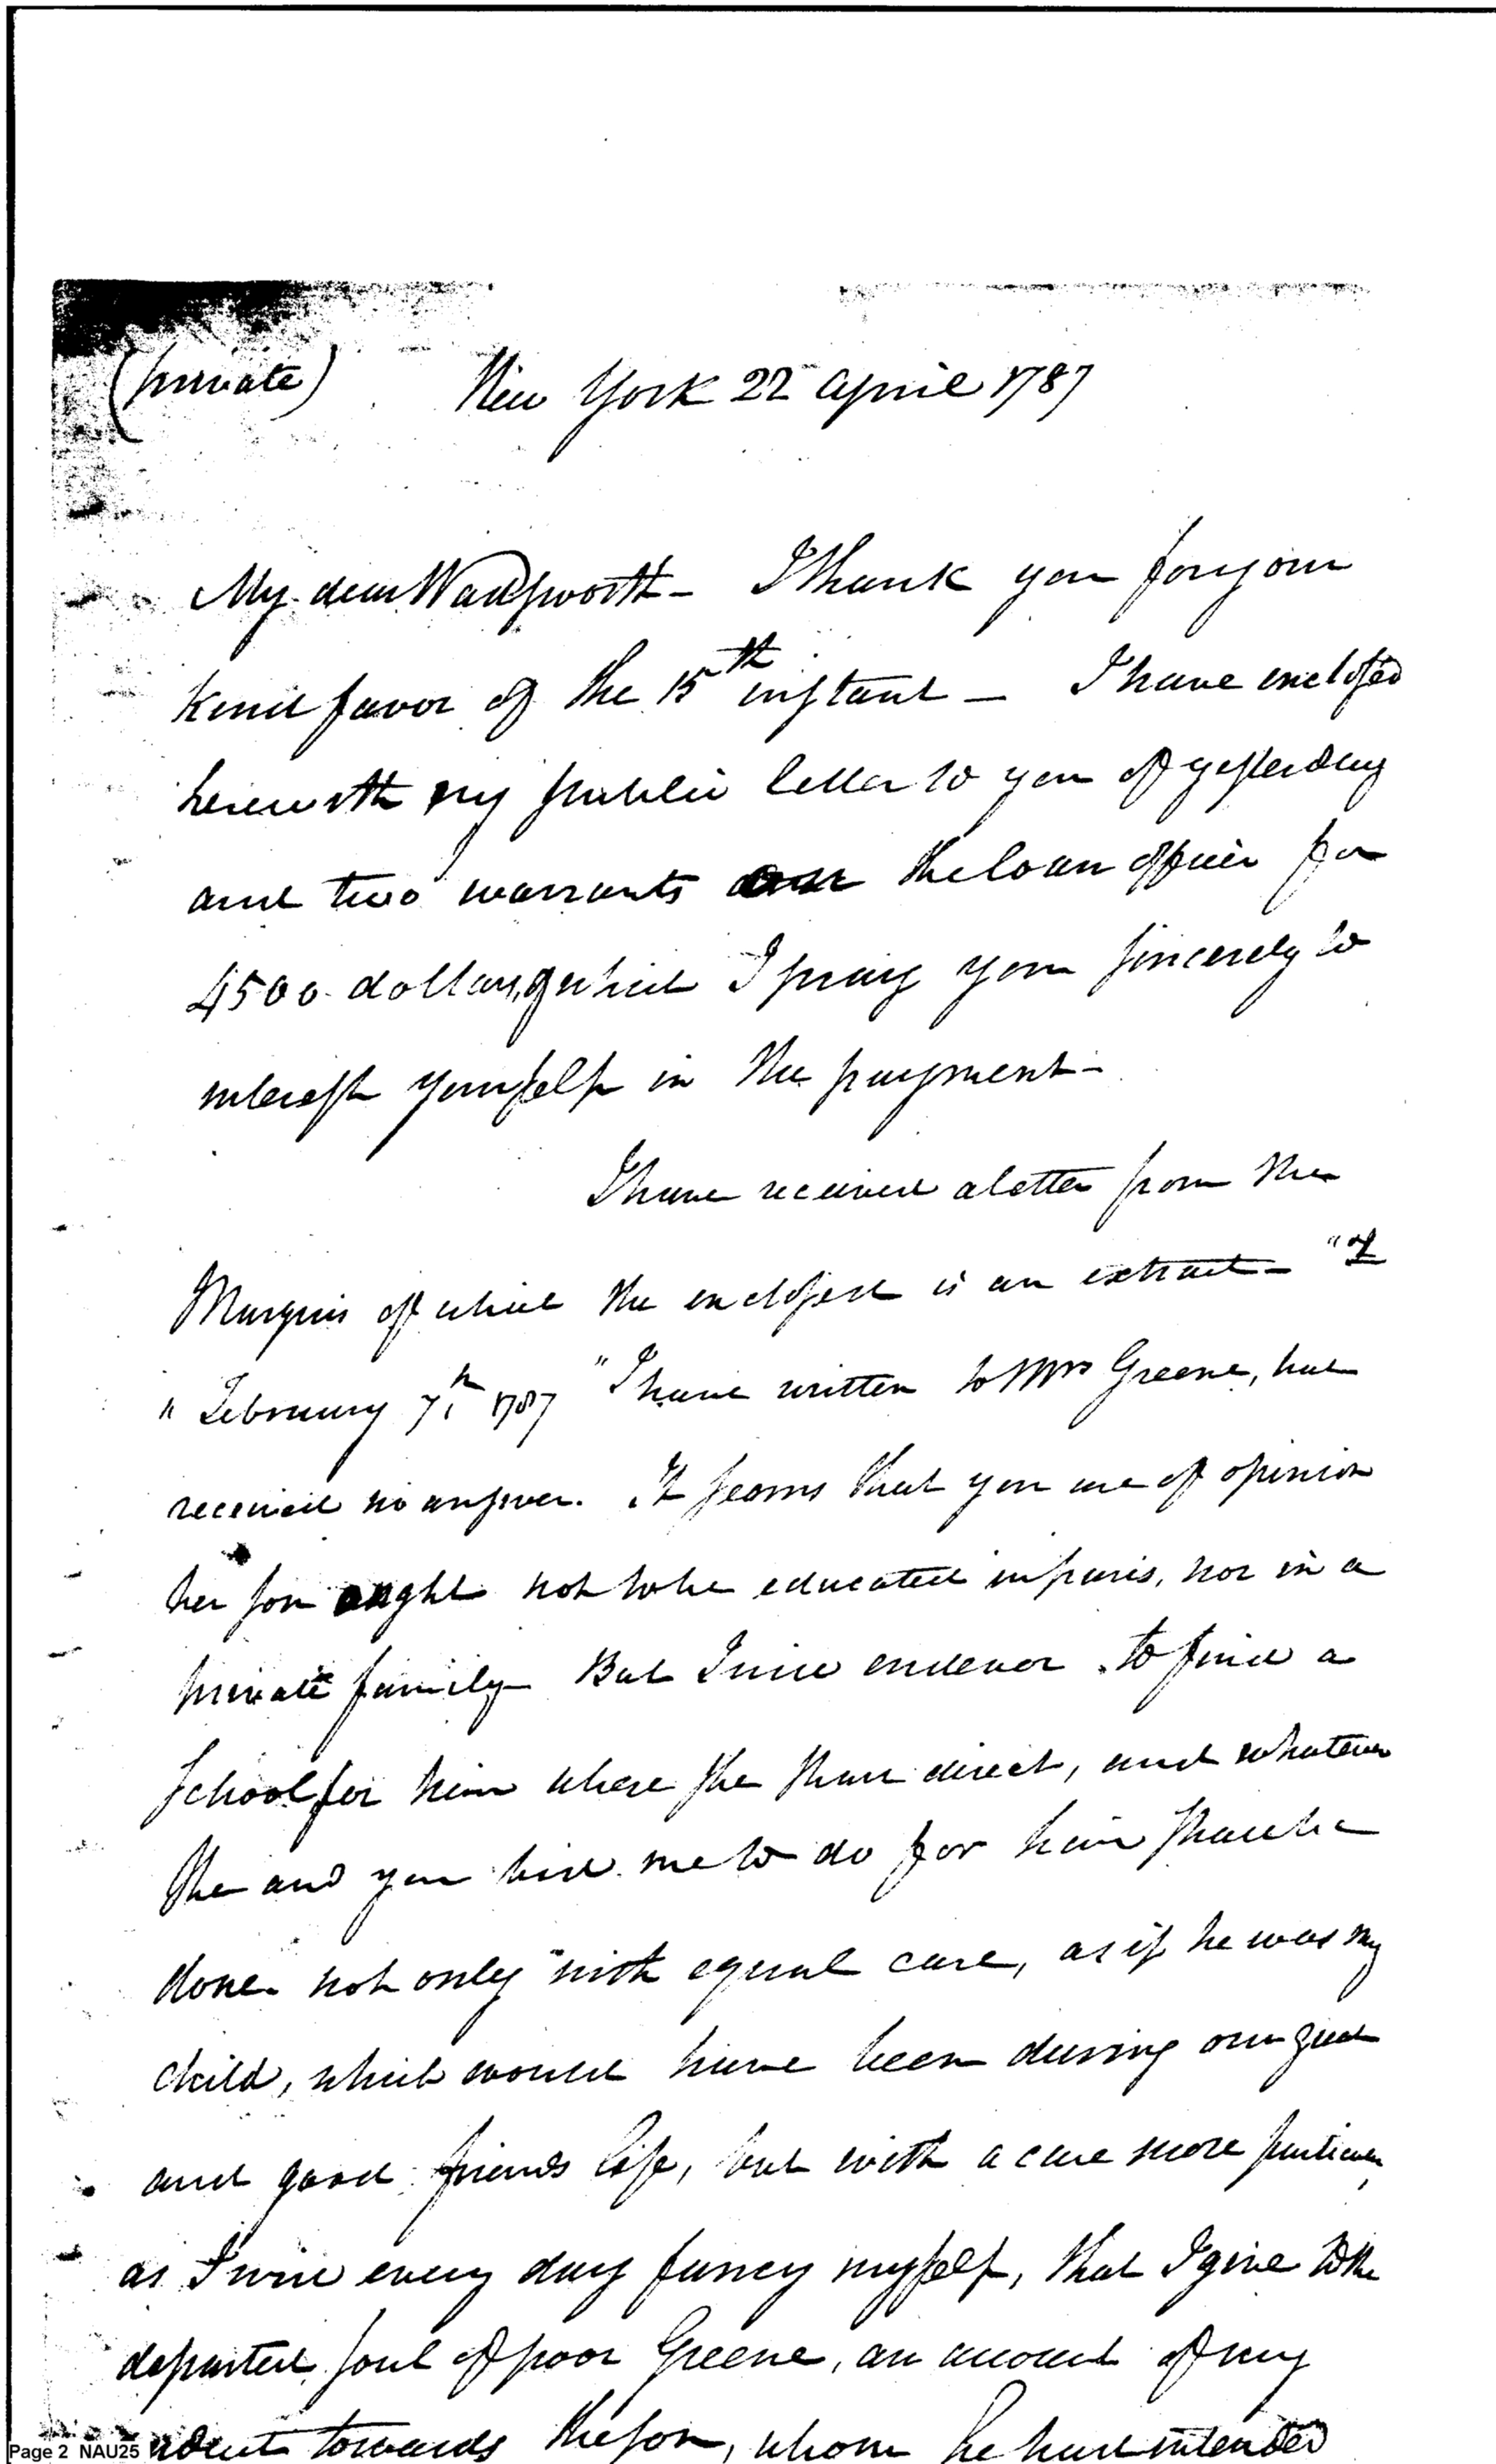 (private) New York 22 April 1787
My dear Wadsworth - I thank you for your
kind favor of the 15th instant - I have enclosed
herewith my public letter to you of yesterday
and two warrants on the loan officer for
4500 dollars, which I pray you sincerely to
interest yourself in the payment -
I have received a letter from the
Marquis of which the enclosed is an extract - "of
" February 7th 1787 " I have written to Mrs Greene, but
received no answer. It seems that you are of opinion
her son ought not to be educated in paris, nor in a
private family - But I will endevor to find a
School for him where she shall direct, and whatever
She and you bid me to do for him shall be
done not only with equal care, as if he was my
child, which would have been during our great
and good friends life, but with a care more particular,
as I will every day fancy myself, that I give to the
departed soul of poor Greene, an account of my
towards the son, whom he had intended
Page 2 NAU25